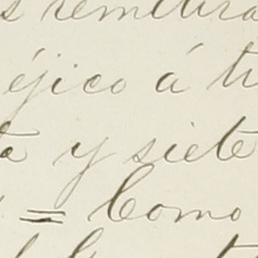 s remitira
éjico á tr
ta y siete
= Como